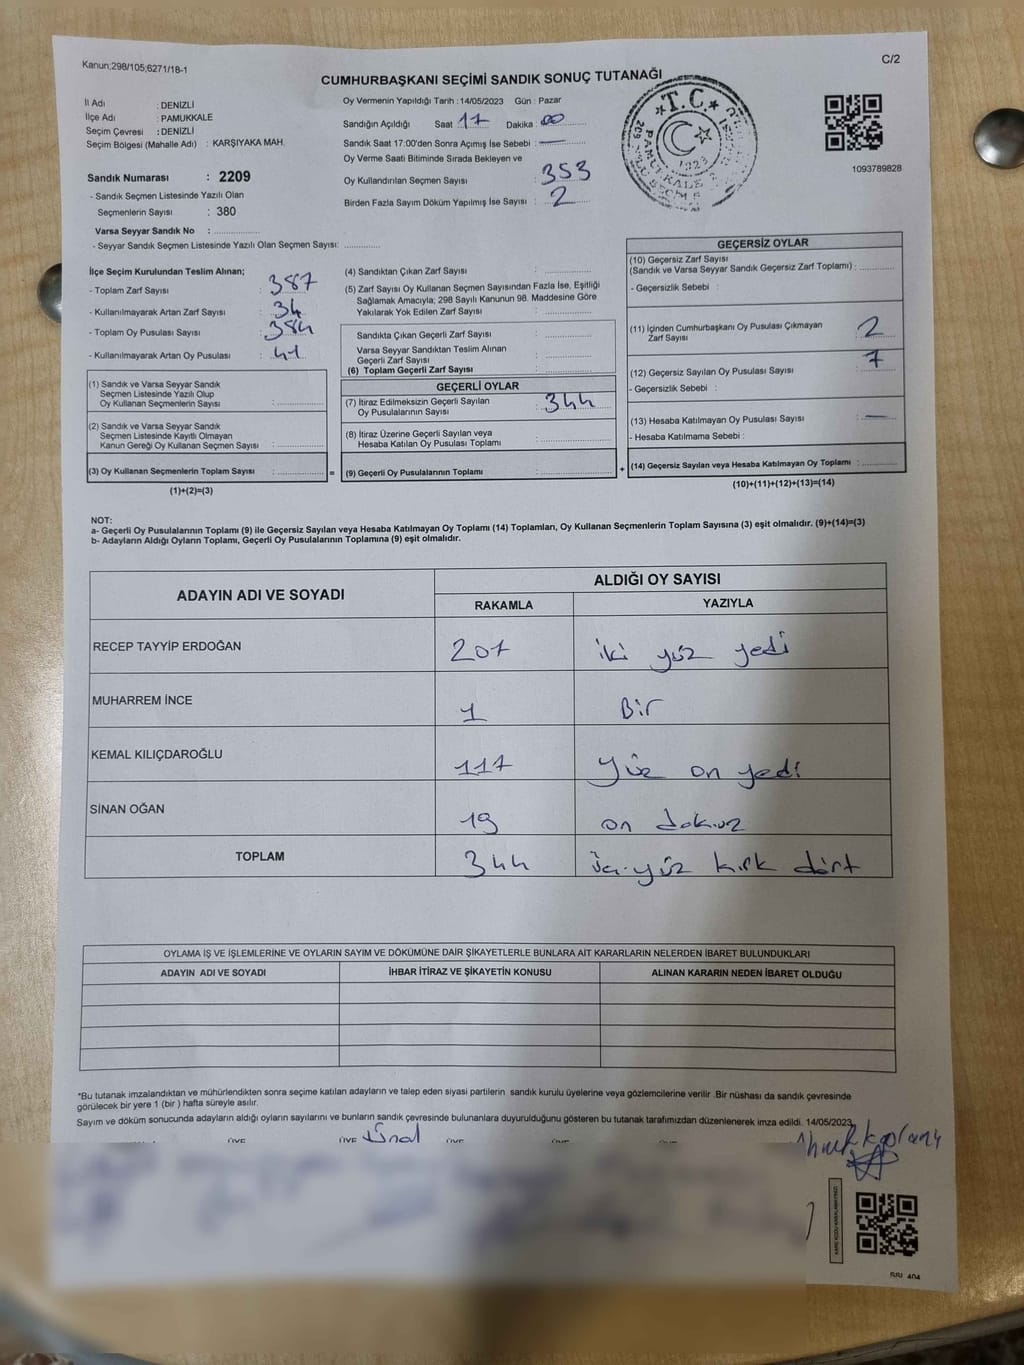 Kanun:298/105;6271/18-1
C/2
CUMHURBAŞKANI SEÇİMİ SANDIK SONUÇ TUTANAĞI
İl Adı : DENİZLİ
İlçe Adı : PAMUKKALE
Seçim Çevresi : DENİZLİ
Seçim Bölgesi (Mahalle Adı) : KARŞIYAKA MAH.
Sandık Numarası : 2209
- Sandık Seçmen Listesinde Yazılı Olan
Seçmenlerin Sayısı : 380
Varsa Seyyar Sandık No : ................
- Seyyar Sandık Seçmen Listesinde Yazılı Olan Seçmen Sayısı: ............
Oy Vermenin Yapıldığı Tarih : 14/05/2023 Gün : Pazar
Sandığın Açıldığı Saat 17 Dakika : 00
Sandık Saat 17:00'den Sonra Açımış İse Sebebi : —
Oy Verme Saati Bitiminde Sırada Bekleyen ve
Oy Kullandırılan Seçmen Sayısı : 353
Birden Fazla Sayım Döküm Yapılmış İse Sayısı : 2
T.C.
PAMUKKALE
1923
1093789828
İlçe Seçim Kurulundan Teslim Alınan;
- Toplam Zarf Sayısı : 387
- Kullanılmayarak Artan Zarf Sayısı : 34
- Toplam Oy Pusulası Sayısı : 384
- Kullanılmayarak Artan Oy Pusulası : 41
(1) Sandık ve Varsa Seyyar Sandık
Seçmen Listesinde Yazılı Olup
Oy Kullanan Seçmenlerin Sayısı : ............
(2) Sandık ve Varsa Seyyar Sandık
Seçmen Listesinde Kayıtlı Olmayan
Kanun Gereği Oy Kullanan Seçmen Sayısı : ............
(3) Oy Kullanan Seçmenlerin Toplam Sayısı : ............ =
(1)+(2)=(3)
(4) Sandıktan Çıkan Zarf Sayısı : ............
(5) Zarf Sayısı Oy Kullanan Seçmen Sayısından Fazla İse, Eşitliği
Sağlamak Amacıyla; 298 Sayılı Kanunun 98. Maddesine Göre
Yakılarak Yok Edilen Zarf Sayısı : ............
Sandıkta Çıkan Geçerli Zarf Sayısı : ............
Varsa Seyyar Sandıktan Teslim Alınan
Geçerli Zarf Sayısı : ............
(6) Toplam Geçerli Zarf Sayısı : ............
GEÇERLİ OYLAR
(7) İtiraz Edilmeksizin Geçerli Sayılan
Oy Pusulalarının Sayısı : 344
(8) İtiraz Üzerine Geçerli Sayılan veya
Hesaba Katılan Oy Pusulası Toplamı : ............
(9) Geçerli Oy Pusulalarının Toplamı : ............ +
GEÇERSİZ OYLAR
(10) Geçersiz Zarf Sayısı
(Sandık ve Varsa Seyyar Sandık Geçersiz Zarf Toplamı) : ............
- Geçersizlik Sebebi :
(11) İçinden Cumhurbaşkanı Oy Pusulası Çıkmayan
Zarf Sayısı : 2
(12) Geçersiz Sayılan Oy Pusulası Sayısı : 7
- Geçersizlik Sebebi :
(13) Hesaba Katılmayan Oy Pusulası Sayısı : —
- Hesaba Katılmama Sebebi :
(14) Geçersiz Sayılan veya Hesaba Katılmayan Oy Toplamı : ............
(10)+(11)+(12)+(13)=(14)
NOT:
a- Geçerli Oy Pusulalarının Toplamı (9) ile Geçersiz Sayılan veya Hesaba Katılmayan Oy Toplamı (14) Toplamları, Oy Kullanan Seçmenlerin Toplam Sayısına (3) eşit olmalıdır. (9)+(14)=(3)
b- Adayların Aldığı Oyların Toplamı, Geçerli Oy Pusulalarının Toplamına (9) eşit olmalıdır.
ADAYIN ADI VE SOYADI ALDIĞI OY SAYISI
RAKAMLA YAZIYLA
RECEP TAYYİP ERDOĞAN 207 iki yüz yedi
MUHARREM İNCE 1 Bir
KEMAL KILIÇDAROĞLU 117 Yüz on yedi
SİNAN OĞAN 19 on dokuz
TOPLAM 344 üç yüz kırk dört
OYLAMA İŞ VE İŞLEMLERİNE VE OYLARIN SAYIM VE DÖKÜMÜNE DAİR ŞİKAYETLERLE BUNLARA AİT KARARLARIN NELERDEN İBARET BULUNDUKLARI
ADAYIN ADI VE SOYADI İHBAR İTİRAZ VE ŞİKAYETİN KONUSU ALINAN KARARIN NEDEN İBARET OLDUĞU
*Bu tutanak imzalandıktan ve mühürlendikten sonra seçime katılan adayların ve talep eden siyasi partilerin sandık kurulu üyelerine veya gözlemcilerine verilir .Bir nüshası da sandık çevresinde
görülecek bir yere 1 (bir ) hafta süreyle asılır.
Sayım ve döküm sonucunda adayların aldığı oyların sayılarını ve bunların sandık çevresinde bulunanlara duyurulduğunu gösteren bu tutanak tarafımızdan düzenlenerek imza edildi. 14/05/2023
ÜYE ÜYE Ünal ÜYE ÜYE ÜYE